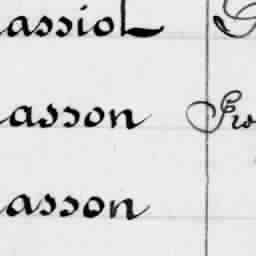 assiol
asson Fro
asson